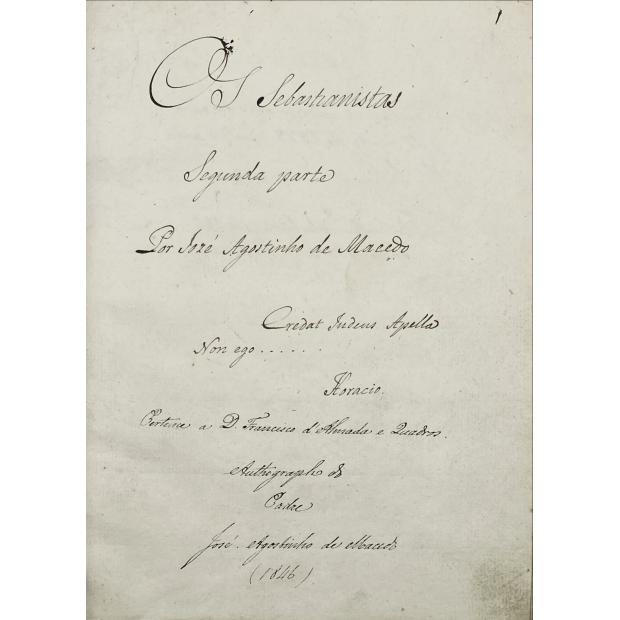 1
Os Sebastianistas
Segunda parte
Por Jozé Agostinho de Macedo
Credat Judeus Apella
Non ego . . . . . .
Horacio.
Pertence a D. Francisco d'Almada e Quadros.
Authographo do
Padre
José Agostinho de Macedo
(1846)